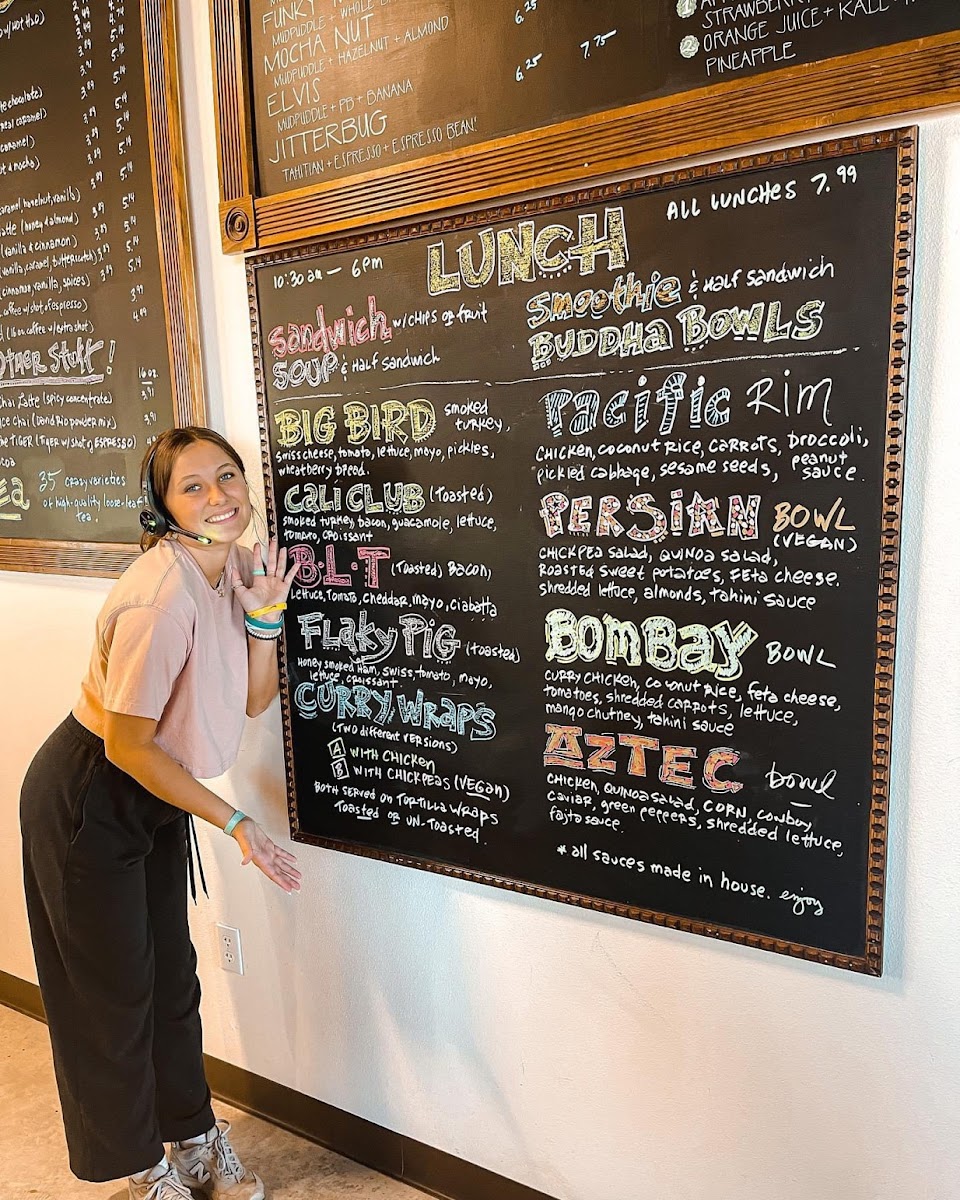 w/Hot H2O)
3.49
5.14
te chocolate)
caramel)
caramel, hazelnut, vanilla)
(honey & almond)
(vanilla & cinnamon)
(vanilla, caramel, butterscotch)
(cinnamon, vanilla, spices)
coffee w/ shot of espresso)
(16 oz. coffee w/ extra shot)
Other Stuff!
16 oz.
Chai Latte (spicy concentrate)
3.91
3.91
(Tiger w/ shot of ESPRESSO)
35 crazy varieties
of high-quality loose-leaf
tea.
FUNKY
MUDPUDDLE + WHOLE
6.25
MOCHA NUT
MUDPUDDLE + HAZELNUT + ALMOND
ELVIS
6.25
7.75
MUDPUDDLE + PB + BANANA
JITTERBUG
TAHITIAN + ESPRESSO + ESPRESSO BEAN!
STRAWBERRY
2 ORANGE JUICE + KALE +
PINEAPPLE
ALL LUNCHES 7.99
10:30 am — 6pm
LUNCH
Sandwich w/ CHIPS or fruit
SOUP & Half Sandwich
Smoothie & HALF SANDWICH
BUDDHA BOWLS
BIG BIRD smoked
turkey,
Swiss cheese, tomato, lettuce, mayo, pickles,
wheatberry bread.
CALI CLUB (Toasted)
smoked turkey, bacon, guacamole, lettuce,
tomato, croissant
B.L.T (Toasted) Bacon,
Lettuce, Tomato, Cheddar, mayo, ciabatta
Flaky Pig (toasted)
Honey smoked Ham, Swiss, tomato, mayo,
lettuce, croissant
CURRY WRAPS
(TWO different versions)
A WITH CHICKEN
B WITH CHICKPEAS (VEGAN)
BOTH SERVED ON TORTILLA WRAPS
TOASTED OR UN-TOASTED.
Pacific Rim
CHICKEN, COCONUT RICE, CARROTS, broccoli,
pickled cabbage, sesame seeds, peanut
sauce.
PERSIAN BOWL
(VEGAN)
CHICKPEA SALAD, QUINOA SALAD,
ROASTED SWEET POTATOES, FETA CHEESE.
Shredded lettuce, almonds, tahini sauce
BOMBAY BOWL
CURRY CHICKEN, coconut rice, feta cheese,
tomatoes, shredded carrots, lettuce,
mango chutney, tahini sauce
AZTEC bowl
CHICKEN, QUINOA SALAD, CORN, cowboy
Caviar, green peppers, shredded lettuce,
fajta sauce.
* all sauces made in house. enjoy